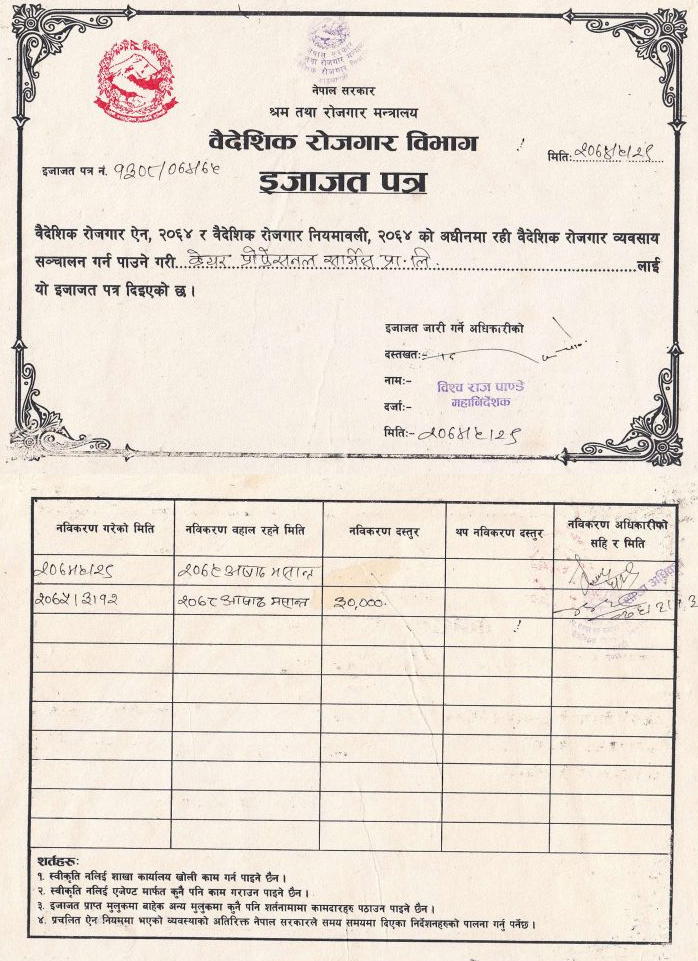 नेपाल सरकार
श्रम तथा रोजगार मन्त्रालय
वैदेशिक रोजगार विभाग
मिति:
इजाजत पत्र नं.
इजाजत पत्र
वैदेशिक रोजगार ऐन, २०६४ र वैदेशिक रोजगार नियमावली, २०६४ को अधीनमा रही वैदेशिक रोजगार व्यवसाय
सञ्चालन गर्न पाउने गरी केयर प्रोफेसनल सार्भिस प्रा.लि. लाई
यो इजाजत पत्र दिइएको छ।
इजाजत जारी गर्ने अधिकारीको
दस्तखतः-
नामः- विश्व राज पाण्डे
दर्जाः- महानिर्देशक
मितिः-
नविकरण गरेको मिति नविकरण वहाल रहने मिति नविकरण दस्तुर थप नविकरण दस्तुर नविकरण अधिकारीको
सहि र मिति
अषाढ मसान्त
२०६८ अषाढ मसान्त ३०,०००.
शर्तहरुः
१. स्वीकृति नलिई शाखा कार्यालय खोली काम गर्न पाइने छैन।
२. स्वीकृति नलिई एजेण्ट मार्फत कुनै पनि काम गराउन पाइने छैन।
३. इजाजत प्राप्त मुलुकमा बाहेक अन्य मुलुकमा कुनै पनि शर्तनामामा कामदारहरु पठाउन पाइने छैन।
४. प्रचलित ऐन नियममा भएको व्यवस्थाको अतिरिक्त नेपाल सरकारले समय समयमा दिएका निर्देशनहरुको पालना गर्नु पर्नेछ।